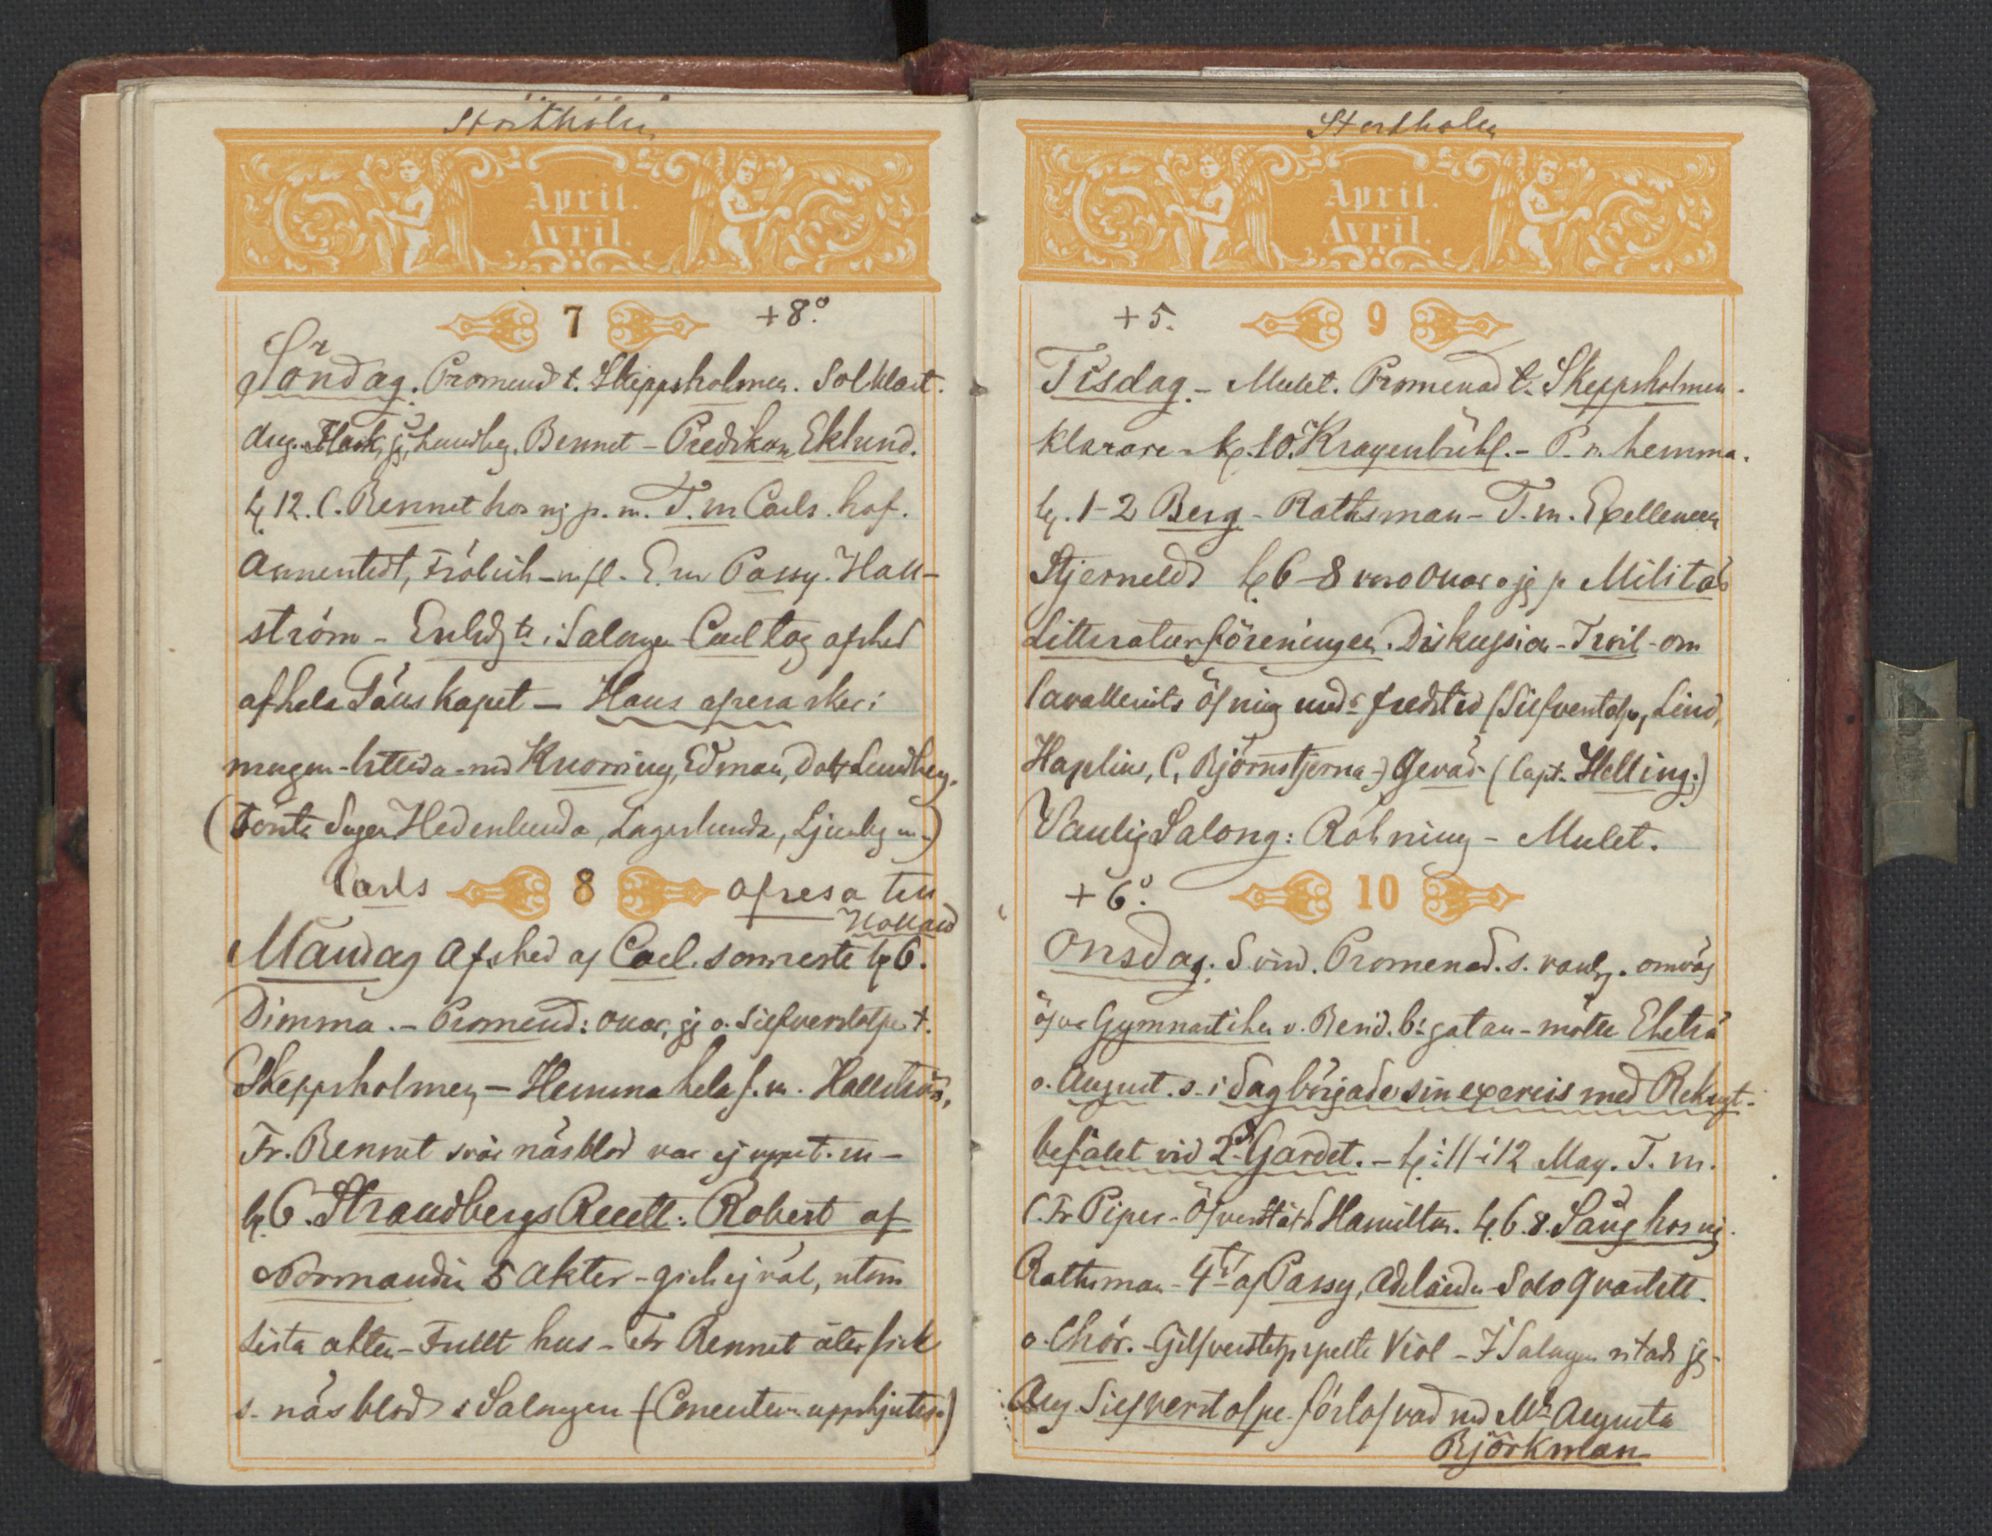 Stockholm
April.
Avril.
7 +8°.
Söndag. Promenad t. Skeppsholmen. Solklart.
dag. jg, Lundbeg. Bennet – Predikan Eklund.
kl. 12. C. Bennet hos mj p. m. T. m Carls. hof.
Annerstedt, Frölich – m fl. E. m Passy. Hall-
ström – Enlidgt i Salongen Carl tog afsked
af hela Sällskapet – Hans afresa sker i
morgon – med Knorring, Edman, Lundbeg.
( Hedenlunda, Lagerlunda, Ljung m.)
Carls 8 afresa till
Holland
Måndag Afsked af Carl. som reste kl 6.
Dimma. – Promend: Oscar, jg o. Silfverstolpe t.
Skeppsholmen – Hemma hela f. m. Hallström,
Fr. Bennet svår näsblod var ej uppe t. m –
kl. 6. Strandbergs Recett: Robert af
Normandie 5 Akter – gick ej väl, utom
sista akten – Fullt hus – Fr Bennet återfick
s. näsblod i Salongen (Concerten uppskjuten)
Stockholm
April.
Avril.
+5. 9
Tisdag – Mulet. Promenad t. Skeppsholmen.
klarare – kl. 10. Kragenbühl. – P. m. hemma.
kl. 1–2 Berg – Rathsman – T. m. Excellencen
Stjerneld kl 6–8 Oscar o jg p Militär
Litteraturföreningen. Diskussion – Tvist – om
Cavalleriets öfning under fredstid (Silfverstolpe, Lind,
Haplin, C, Björnstjerna –) Gevär (Capt. Helling.)
Vanlig Salong: Råkning – Mulet.
+6°. 10
Onsdag. S. vind. Promenad. s. vanlg. omväg
öfver Gymnastiken v. Berid. b: gatan – mötte Ehrträ
o. August. s. i dag började sin exercis med Rekryt-
befälet vid 2d Gardet. – kl: 11–12 May. T. m.
C. Fr Piper – Öfverståth Hamilton. kl. 6. 8. Sång hos mj.
Rathsman – 4tt af Passy, Adelaide – Solo Qvartett.
o. Chör. – Silfverstolpe spelte Viol – I Salongen ritade jg –
Aug. Silfverstolpe förlofvad med Mll Augusta
Björkman